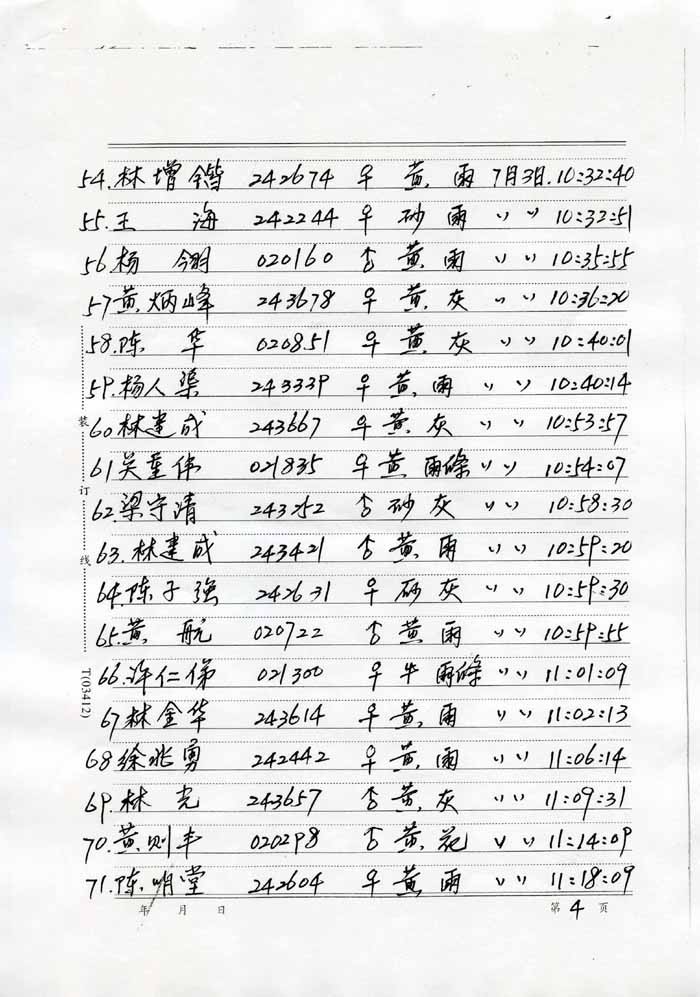 54. 林增锴 242674 우 黄 雨 7月3日. 10:32:40
55. 王 海 242244 우 砂 雨 〃 〃 10:32:51
56 杨 翎 020160 습 黄 雨 〃 〃 10:35:55
57 黄炳峰 243678 우 黄 灰 〃 〃 10:36:20
58. 陈 华 020851 우 黄 灰 〃 〃 10:40:01
59. 杨人渠 243339 우 黄 雨 〃 〃 10:40:14
60 林建成 243667 우 黄 灰 〃 〃 10:53:57
61 吴董伟 021835 우 黄 雨條 〃 〃 10:54:07
62. 梁守清 243252 습 砂 灰 〃 〃 10:58:30
63. 林建成 243421 습 黄 雨 〃 〃 10:59:20
64. 陈子强 242631 우 砂 灰 〃 〃 10:59:30
65. 黄 航 020722 습 黄 雨 〃 〃 10:59:55
66. 许仁俤 021300 우 牛 雨條 〃 〃 11:01:09
67 林金华 243614 우 黄 雨 〃 〃 11:02:13
68 徐兆勇 242442 우 黄 雨 〃 〃 11:06:14
69. 林 光 243657 습 黄 灰 〃 〃 11:09:31
70. 黄则丰 020298 습 黄 花 〃 〃 11:14:09
71. 陈明堂 242604 우 黄 雨 〃 〃 11:18:09
年 月 日 第 4 页
装 订 线
T(03412)